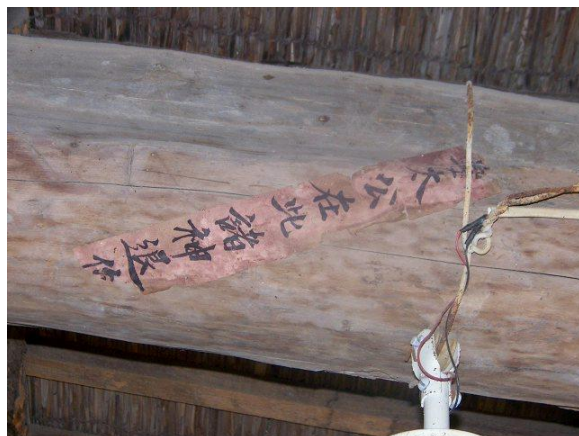 姜太公在此諸神退位